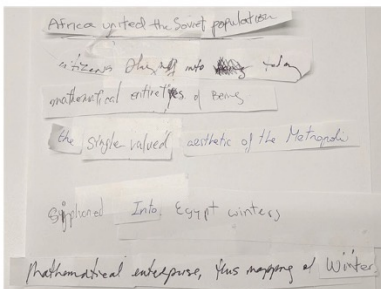 Africa united the Soviet population
citizens into today
mathematical entireties of Being
the single valued aesthetic of the Metropoli
Syphoned Into Egypt winters
Mathematical enterprise, thus mapping of Winters